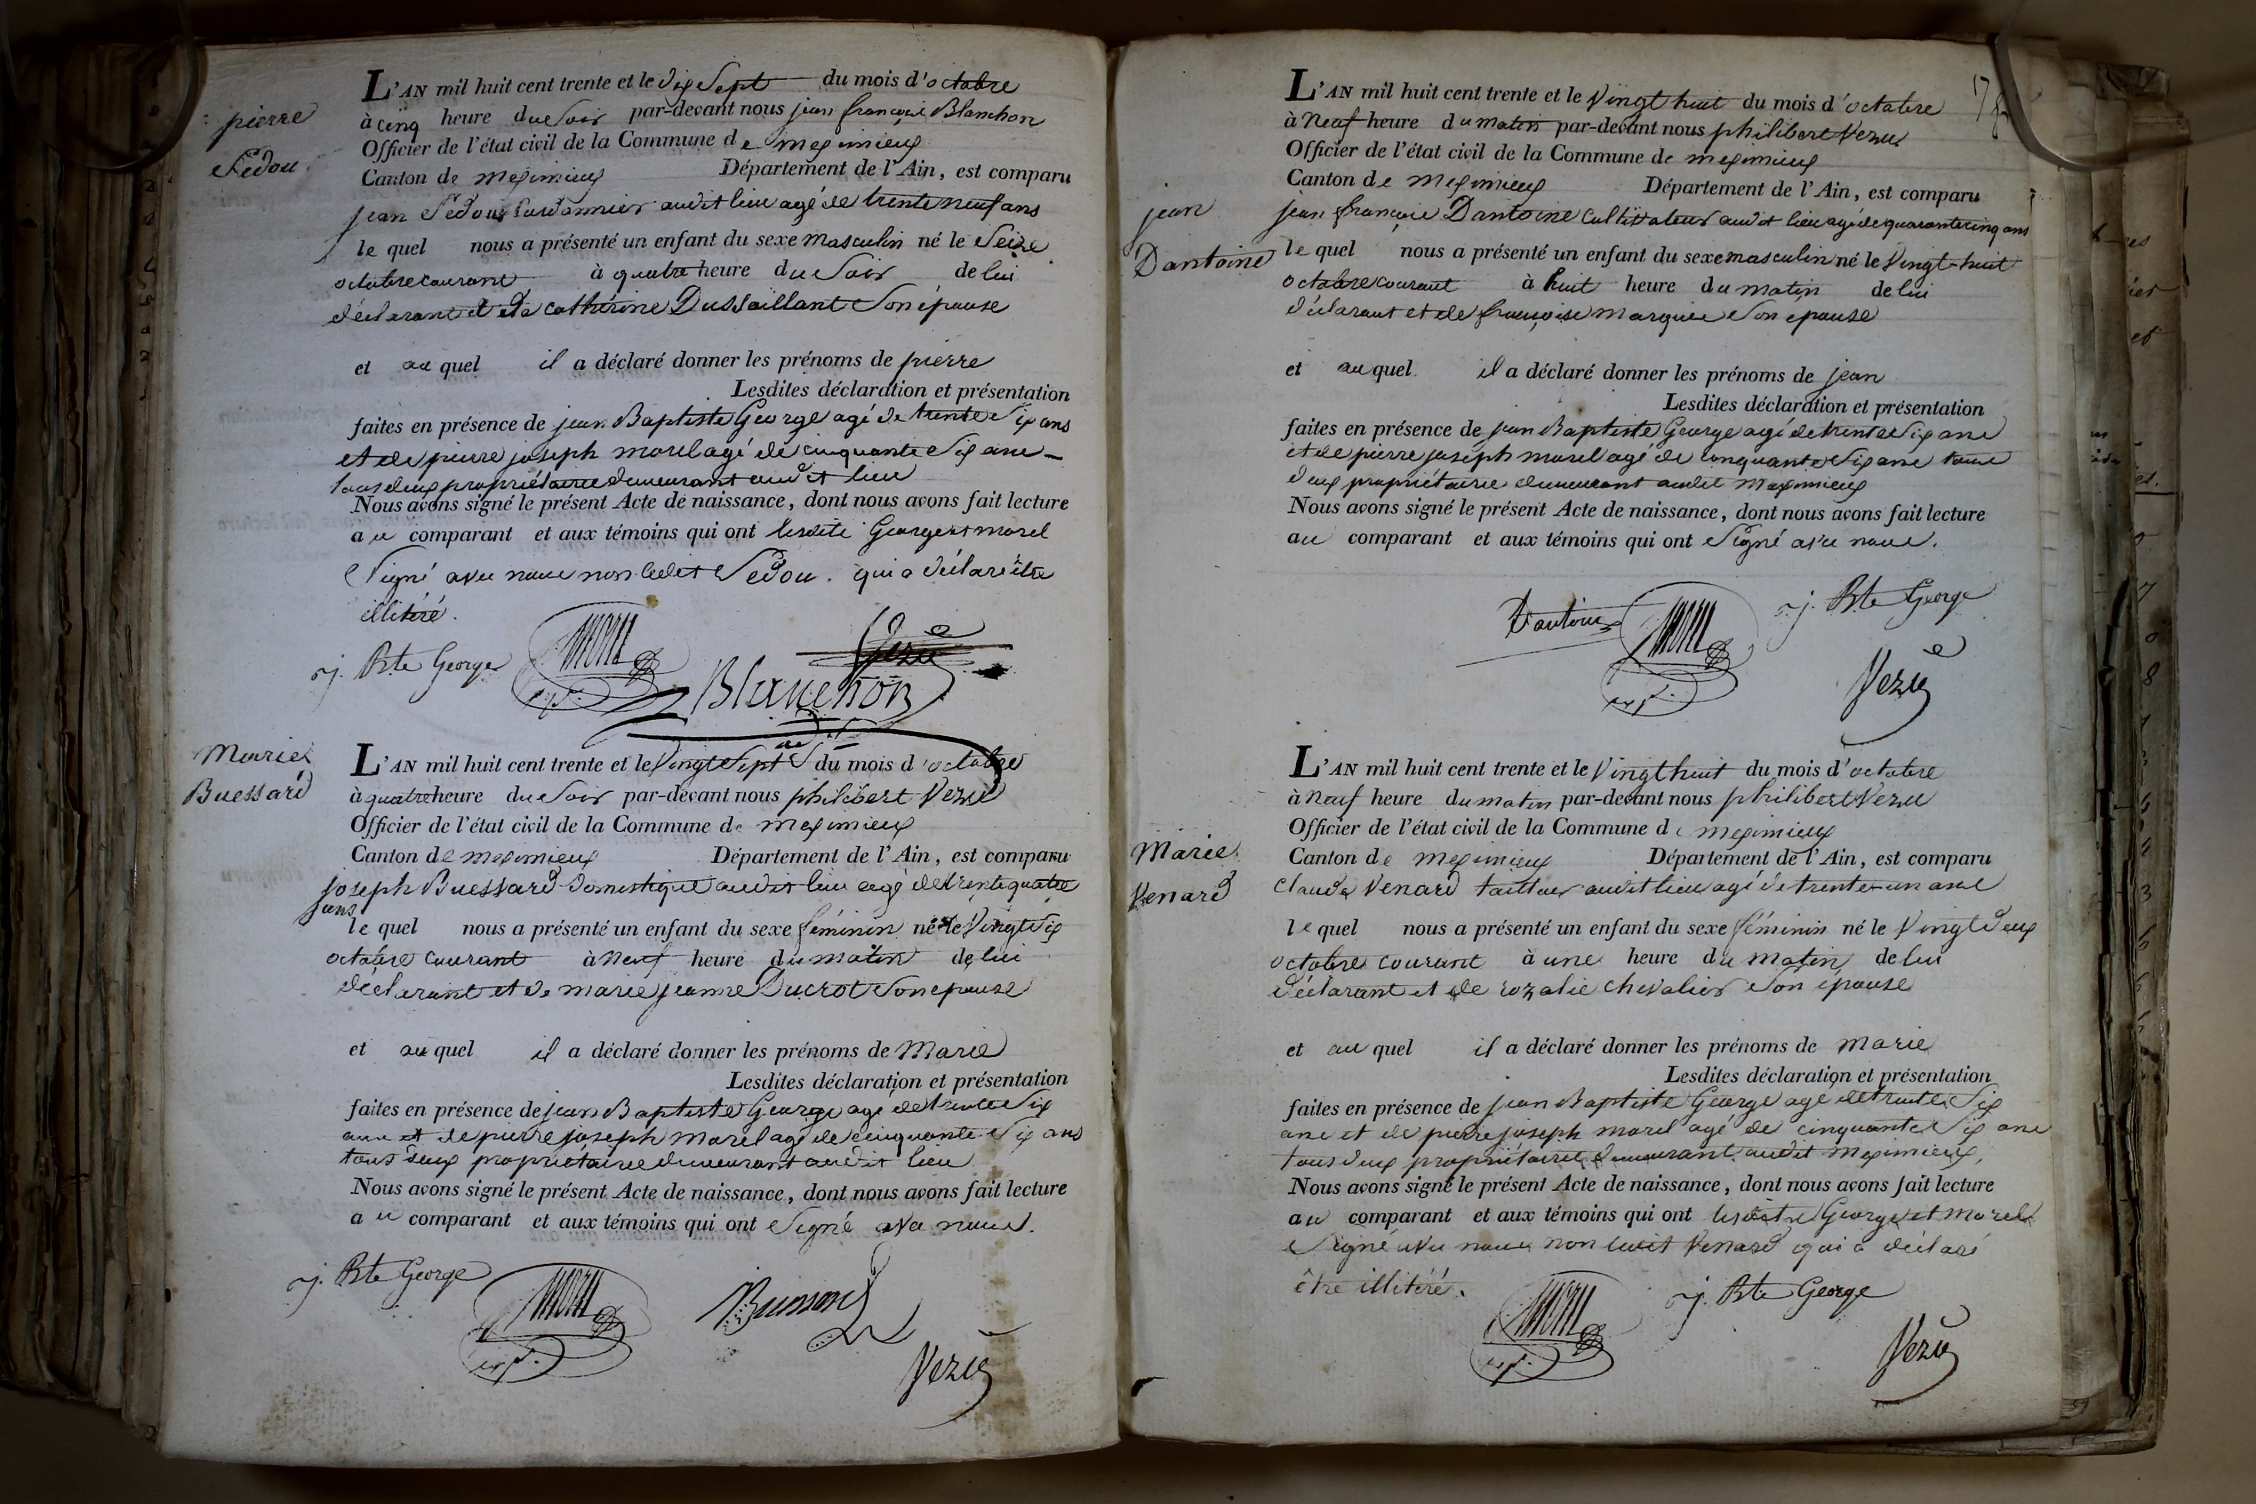 pierre
Sedou
L'AN mil huit cent trente et le dix Sept du mois d'octobre
à cinq heure du Soir par-devant nous jean françois Blanchon
Officier de l'état civil de la Commune de meximieux
Canton de meximieux Département de l'Ain, est comparu
jean Sedou Cordonnier audit lieu agé de trente neuf ans
le quel nous a présenté un enfant du sexe masculin né le Seize
octobre courant à quatre heure du Soir de lui
déclarant et de catherine Dussaillant Son épouse
et au quel il a déclaré donner les prénoms de pierre
Lesdites déclaration et présentation
faites en présence de jean Baptiste George agé de trente Six ans
et de pierre joseph morel agé de cinquante Six ans
tous deux propriétaires demeurant audit lieu
Nous avons signé le présent Acte de naissance, dont nous avons fait lecture
au comparant et aux témoins qui ont lesdits George et morel
Signé avec nous non ledit Sedou. qui a déclaré être
illitéré.
j. Bte George morel Vezu
Blanchon
adj.
Marie
Buessard
L'AN mil huit cent trente et le Vingt Sept du mois d'octobre
à quatre heure du Soir par-devant nous philibert Vezu
Officier de l'état civil de la Commune de meximieux
Canton de meximieux Département de l'Ain, est comparu
joseph Buessard Domestique audit lieu agé de trente quatre
ans
le quel nous a présenté un enfant du sexe féminin né le Vingt Six
octobre courant à Neuf heure du matin de lui
déclarant et de marie jeanne Ducrot Son épouse
et au quel il a déclaré donner les prénoms de Marie
Lesdites déclaration et présentation
faites en présence de jean Baptiste George agé de trente Six
ans et de pierre joseph Morel agé de cinquante Six ans
tous deux propriétaires demeurant audit lieu
Nous avons signé le présent Acte de naissance, dont nous avons fait lecture
au comparant et aux témoins qui ont Signé avec nous.
j. Bte George morel
Vezu
jean
Dantoine
L'AN mil huit cent trente et le Vingt huit du mois d'octobre
à Neuf heure du matin par-devant nous philibert Vezu
Officier de l'état civil de la Commune de meximieux
Canton de meximieux Département de l'Ain, est comparu
jean françois Dantoine cultivateur audit lieu agé de quarante cinq ans
le quel nous a présenté un enfant du sexe masculin né le Vingt-huit
octobre courant à huit heure du matin de lui
déclarant et de françoise marquis Son épouse
et au quel il a déclaré donner les prénoms de jean
Lesdites déclaration et présentation
faites en présence de jean Baptiste George agé de trente Six ans
et de pierre joseph morel agé de cinquante Six ans tous
deux propriétaires demeurant audit Meximieux
Nous avons signé le présent Acte de naissance, dont nous avons fait lecture
au comparant et aux témoins qui ont Signé avec nous.
Dantoine morel j. Bte George
Vezu
Marie
Venard
L'AN mil huit cent trente et le Vingt huit du mois d'octobre
à Neuf heure du matin par-devant nous philibert Vezu
Officier de l'état civil de la Commune de meximieux
Canton de meximieux Département de l'Ain, est comparu
Claude Venard tailleur audit lieu agé de trente un ans
le quel nous a présenté un enfant du sexe féminin né le Vingt Deux
octobre courant à une heure du matin de lui
déclarant et de rozalie chevalier Son épouse
et au quel il a déclaré donner les prénoms de marie
Lesdites déclaration et présentation
faites en présence de jean Baptiste George agé de trente Six
ans et de pierre joseph morel agé de cinquante Six ans
tous deux propriétaires demeurant audit meximieux,
Nous avons signé le présent Acte de naissance, dont nous avons fait lecture
au comparant et aux témoins qui ont lesdits George et Morel
Signé avec nous non ledit Venard qui a déclaré
être illitéré.
morel j. Bte George
Vezu